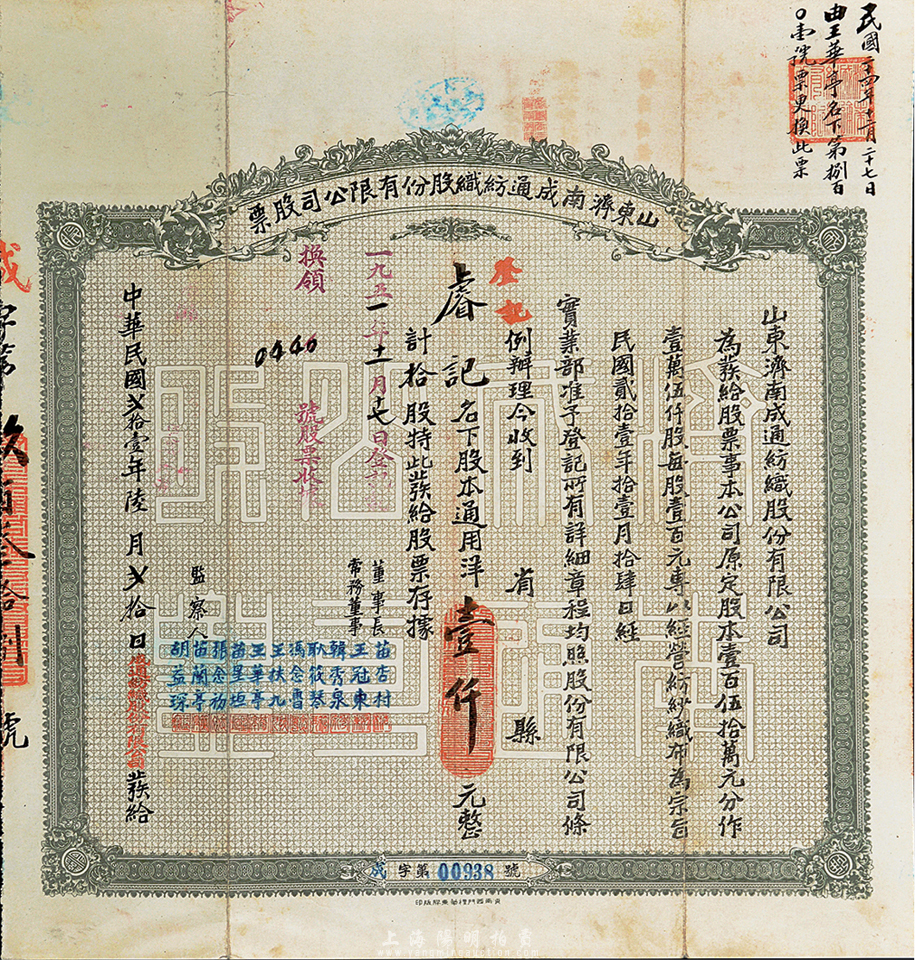 民國二十四年十一月二十七日
由王華亭名下第捌百
〇壹號票更換此票
山東濟南成通紡織股份有限公司股票
山東濟南成通紡織股份有限公司
為蕟給股票事本公司原定股本壹百伍拾萬元分作
壹萬伍仟股每股壹百元專以經營紡紗織布為宗旨
民國貳拾壹年拾壹月拾肆日經
實業部准予登記所有詳細章程均照股份有限公司條
例辦理今收到 省 縣
登記
睿記名下股本通用洋壹仟元整
計拾股特此蕟給股票存據
一九五一年十一月十七日
換領 0446 號股票
董事長 苗杏村
常務董事 王冠東
韓秀泉
耿筱琴
馮念魯
王扶九
王華亭
苗星垣
張念初
監察人 苗蘭亭
胡益琛
中華民國弍拾壹年陸月弍拾日成通紡織股份有限公司蕟給
成字第玖百叁拾捌號
成字第00938號
上海陽明拍賣